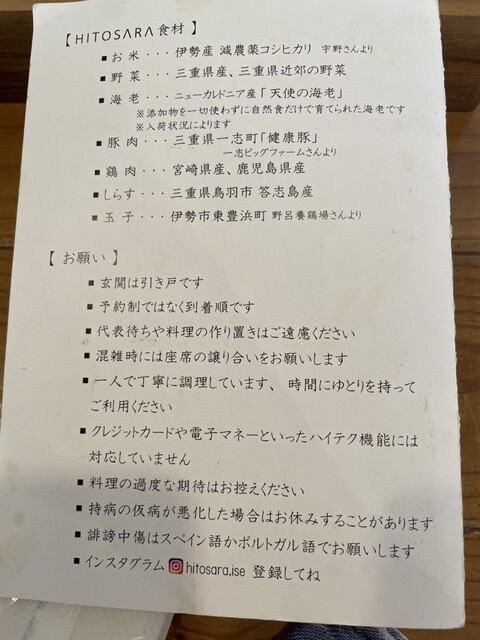 【 HITOSARA食材 】
■ お 米 ・・・ 伊勢産 減農薬コシヒカリ 宇野さんより
■ 野 菜 ・・・ 三重県産、三重県近郊の野菜
■ 海 老 ・・・ ニューカレドニア産「 天使の海老」
※添加物を一切使わずに自然食だけで育てられた海老です
※入荷状況によります
■ 豚 肉 ・・・ 三重県一志町「健康豚」
一志ピッグファームさんより
■ 鶏 肉 ・・・ 宮崎県産、鹿児島県産
■ しらす ・・・ 三重県鳥羽市 答志島産
■ 玉 子 ・・・ 伊勢市東豊浜町 野呂養鶏場さんより
【 お願い 】
■ 玄関は引き戸です
■ 予約制ではなく到着順です
■ 代表待ちや料理の作り置きはご遠慮ください
■ 混雑時には座席の譲り合いをお願いします
■ 一人で丁寧に調理しています、 時間にゆとりを持って
ご利用ください
■ クレジットカードや電子マネーといったハイテク機能には
対応していません
■ 料理の過度な期待はお控えください
■ 持病の仮病が悪化した場合はお休みすることがあります
■ 誹謗中傷はスペイン語かポルトガル語でお願いします
■ インスタグラム hitosara.ise 登録してね